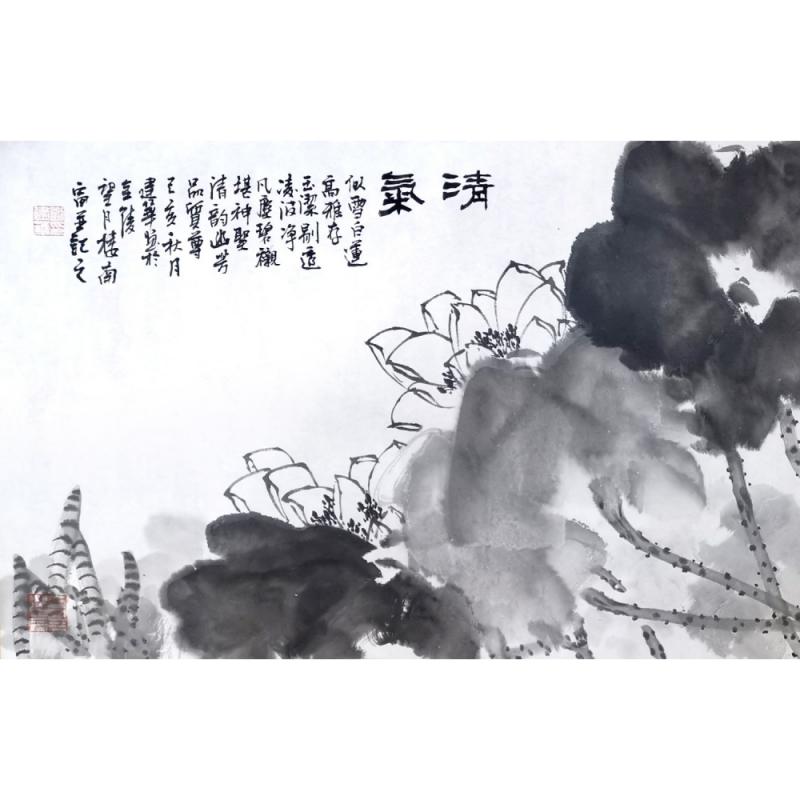 清氣
似雪白蓮
高雅存
玉潔剔透
凌波净
凡塵碧襯
堪神聖
清韵幽芳
品質尊
己亥秋月
建華寫於
金陵
望月樓南
窗並記之